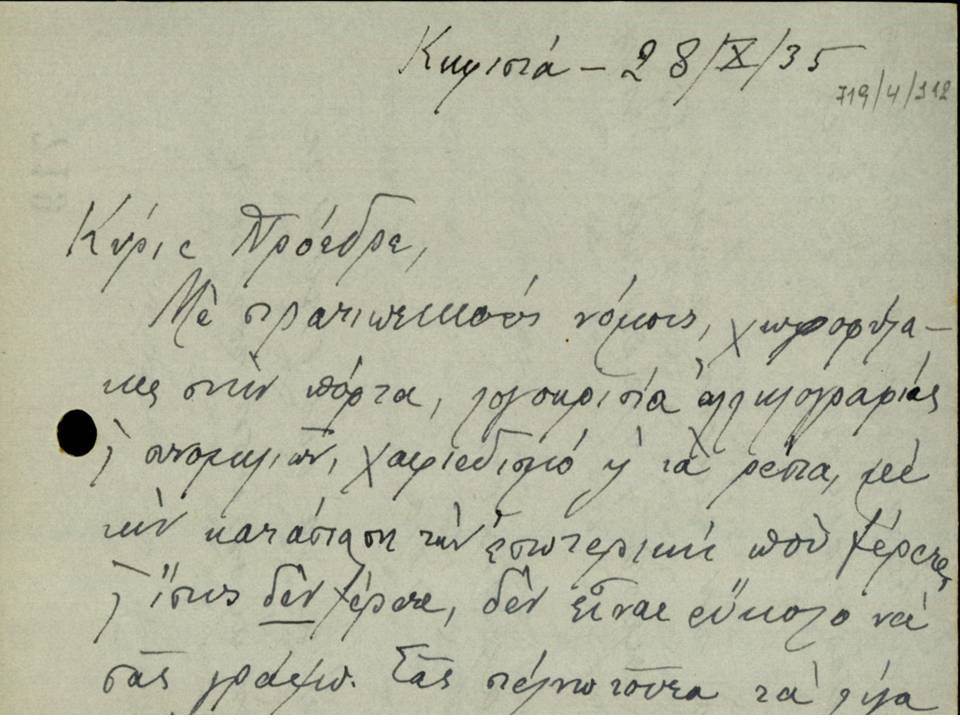 Κηφισιά – 28/X/35
719/4/112
Κύριε Πρόεδρε,
Μὲ στρατιωτικοὺς νόμους, χωροφύλα-
κες στὴν πόρτα, λογοκρισία ἀλληλογραφίας
ἢ συνομιλιῶν, χαφιεδισμό κι τὰ ρέστα, μὲ
τὴν κατάσταση τὴν ἐσωτερικὴ ποὺ ξέρετε,
ἢ ἴσως δὲν ξέρετε, δὲν εἶναι εὔκολο νὰ
σᾶς γράψω. Σᾶς στέλνω τοῦτα τὰ λίγα